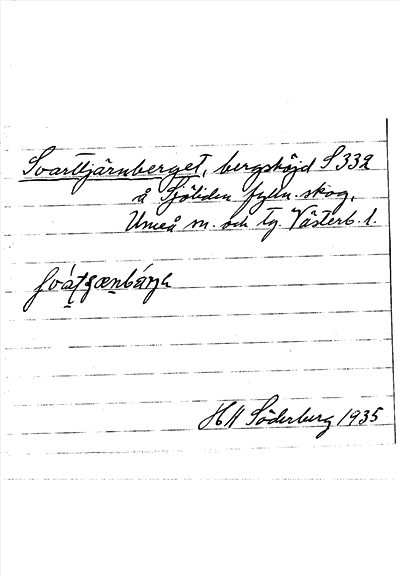 Svarttjärnberget, bergshöjd S 332
å Sjöliden fylln. skog,
Umeå m. och tg. Västerb. l.
Söderberg 1935